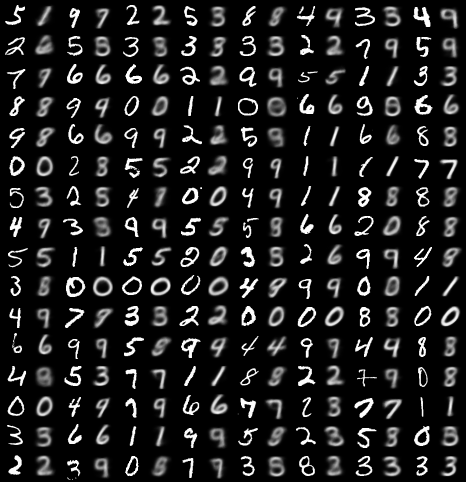 5 1 9 7 2 2 5 3 8 8 4 9 3 3 4 9
2 6 5 5 3 3 3 8 3 3 2 2 7 9 5 9
7 9 6 6 6 6 2 2 9 9 5 5 1 1 3 3
8 8 9 9 0 0 1 1 0 0 6 6 9 8 6 6
9 8 6 6 9 9 2 2 5 8 1 1 6 6 8 8
0 0 2 8 5 5 2 2 9 9 1 1 1 1 7 7
5 3 2 5 4 8 0 0 4 9 1 1 8 8 8 8
4 9 3 8 9 9 5 5 5 8 6 6 2 0 8 8
5 5 1 1 5 5 2 0 3 3 2 6 9 9 4 8
3 8 0 0 0 0 0 0 4 9 9 9 0 0 1 1
4 9 7 9 3 3 2 2 0 0 0 0 8 8 0 0
6 6 9 9 5 8 9 9 4 4 9 9 4 4 8 8
4 8 5 3 7 7 1 1 8 8 2 2 7 9 0 8
0 0 4 9 7 9 6 6 7 7 2 8 7 7 1 1
3 3 6 6 1 1 9 9 5 8 2 3 5 8 0 3
2 2 3 9 0 8 7 9 3 8 8 2 3 3 3 3